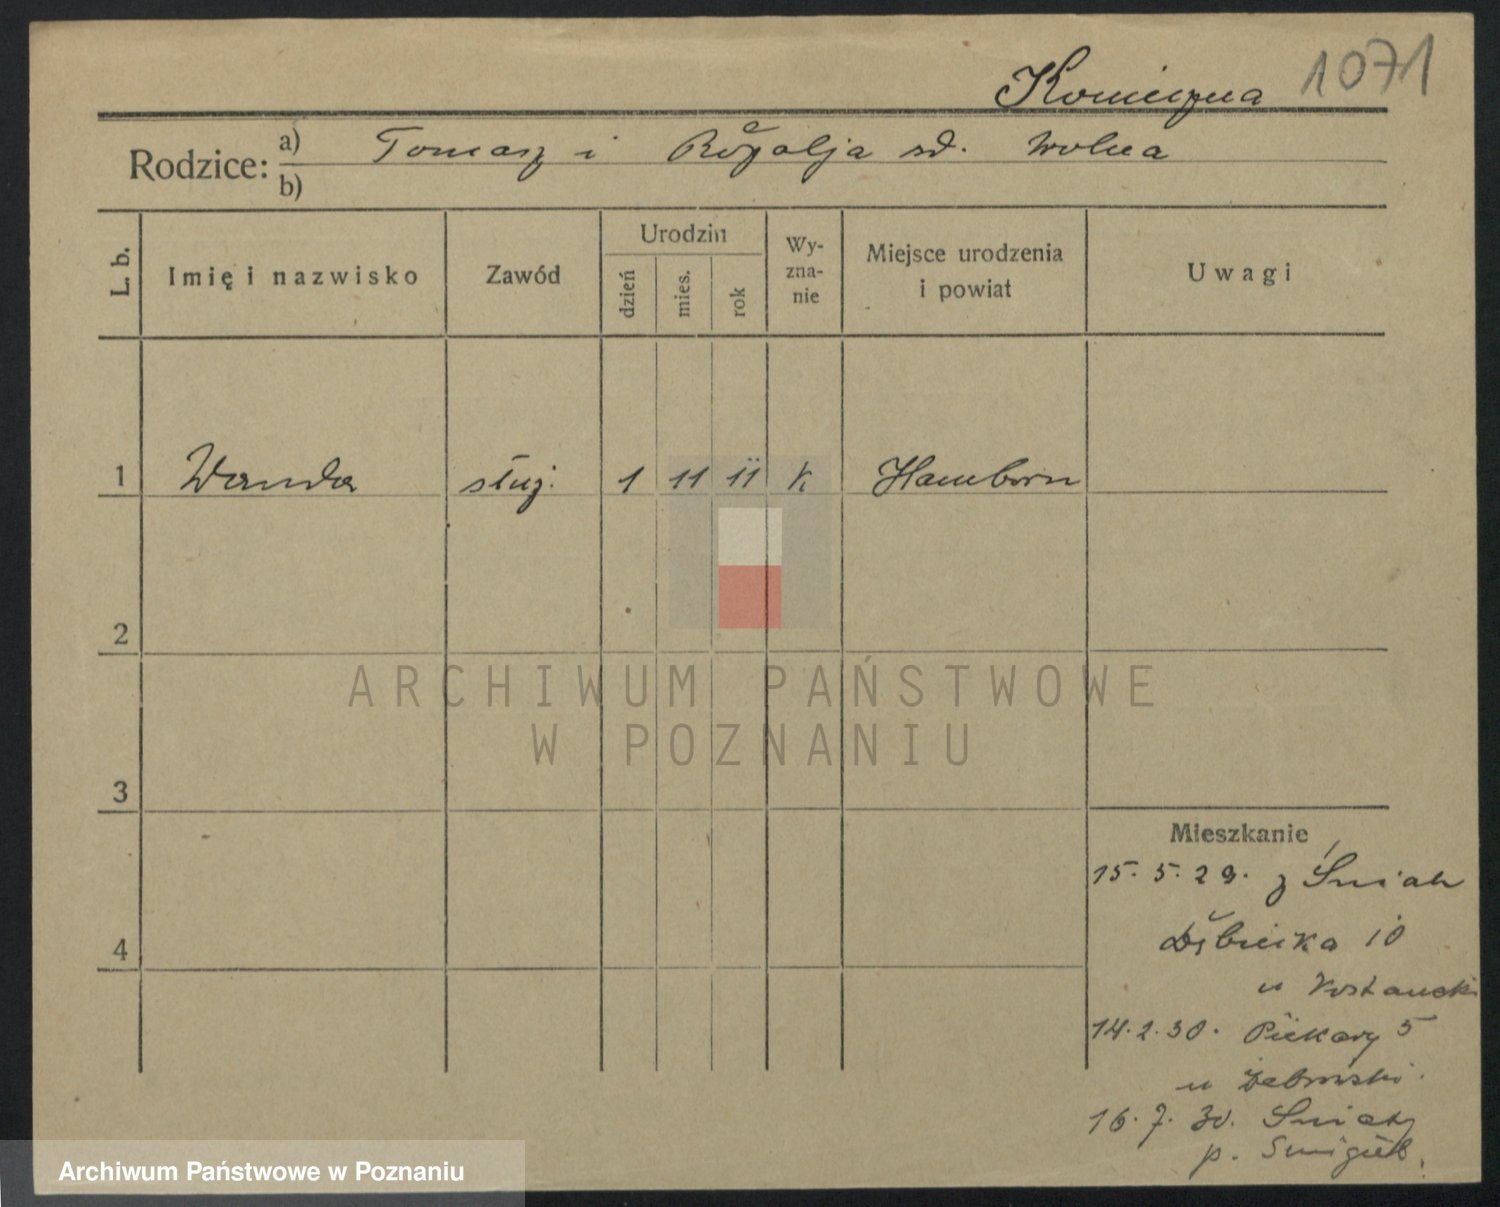 Konieczna 1071
Rodzice: a) Tomasz i Rozalja sd. Wolna
b)
L. b.
Imię i nazwisko
Zawód
Urodzin
dzień
mies.
rok
Wy-
zna-
nie
Miejsce urodzenia
i powiat
Uwagi
1 Wanda służ. 1 11 11 k Hamborn
2
3
4
Mieszkanie
15. 5. 29. z Śniat
10
u
14. 2. 30. Piekary 5
u
16. 7. 30. Śniaty
p. Śmigiel.
ARCHIWUM PAŃSTWOWE
W POZNANIU
Archiwum Państwowe w Poznaniu